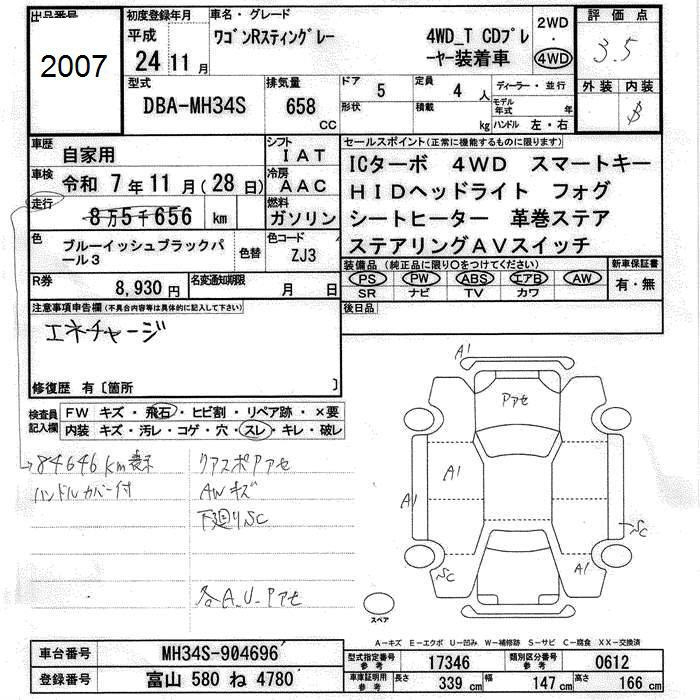 出品番号
2007
初度登録年月
平成
24 11 月
車名・グレード
ワゴンRスティングレー 4WD_T CDプレーヤー装着車
2WD
・
4WD
評価点
3.5
型式
DBA-MH34S
排気量
658
CC
ドア
5
形状
定員
4 人
積載
kg
ディーラー・並行
モデル年式 年
ハンドル 左・右
外装 内装
B
車歴
自家用
シフト
IAT
セールスポイント(正常に機能するものに限ります)
ICターボ 4WD スマートキー
HIDヘッドライト フォグ
シートヒーター 革巻ステア
ステアリングAVスイッチ
車検
令和 7年11月(28日)
冷房
AAC
走行
8万5千656 km
燃料
ガソリン
色
ブルーイッシュブラックパール3
色替
色コード
ZJ3
装備品(純正品に限り○をつけてください)
PS PW ABS エアB AW
SR ナビ TV カワ
新車保証書
有・無
R券
8,930 円
名変通知期限
月 日
後日品
注意事項申告欄(不具合内容等は具体的に記入して下さい)
エネチャージ
修復歴 有〔箇所 〕
検査員記入欄
FW キズ・飛石・ヒビ割・リペア跡・×要
内装 キズ・汚レ・コゲ・穴・スレ・キレ・破レ
84646km表示
ハンドルカバー付
クリアスポアセ
AWキズ
下廻りSC
各A.U.アセ
A1
アセ
A1
A1
SC
SC
A1
スペア
A-キズ E-エクボ U-凹み W-補修跡 S-サビ C-腐食 XX-交換済
車台番号
MH34S-904696
登録番号
富山 580 ね 4780
型式指定番号
参考
17346
類別区分番号
参考
0612
車庫証明用
参考
長さ 339 cm
幅 147 cm
高さ 166 cm